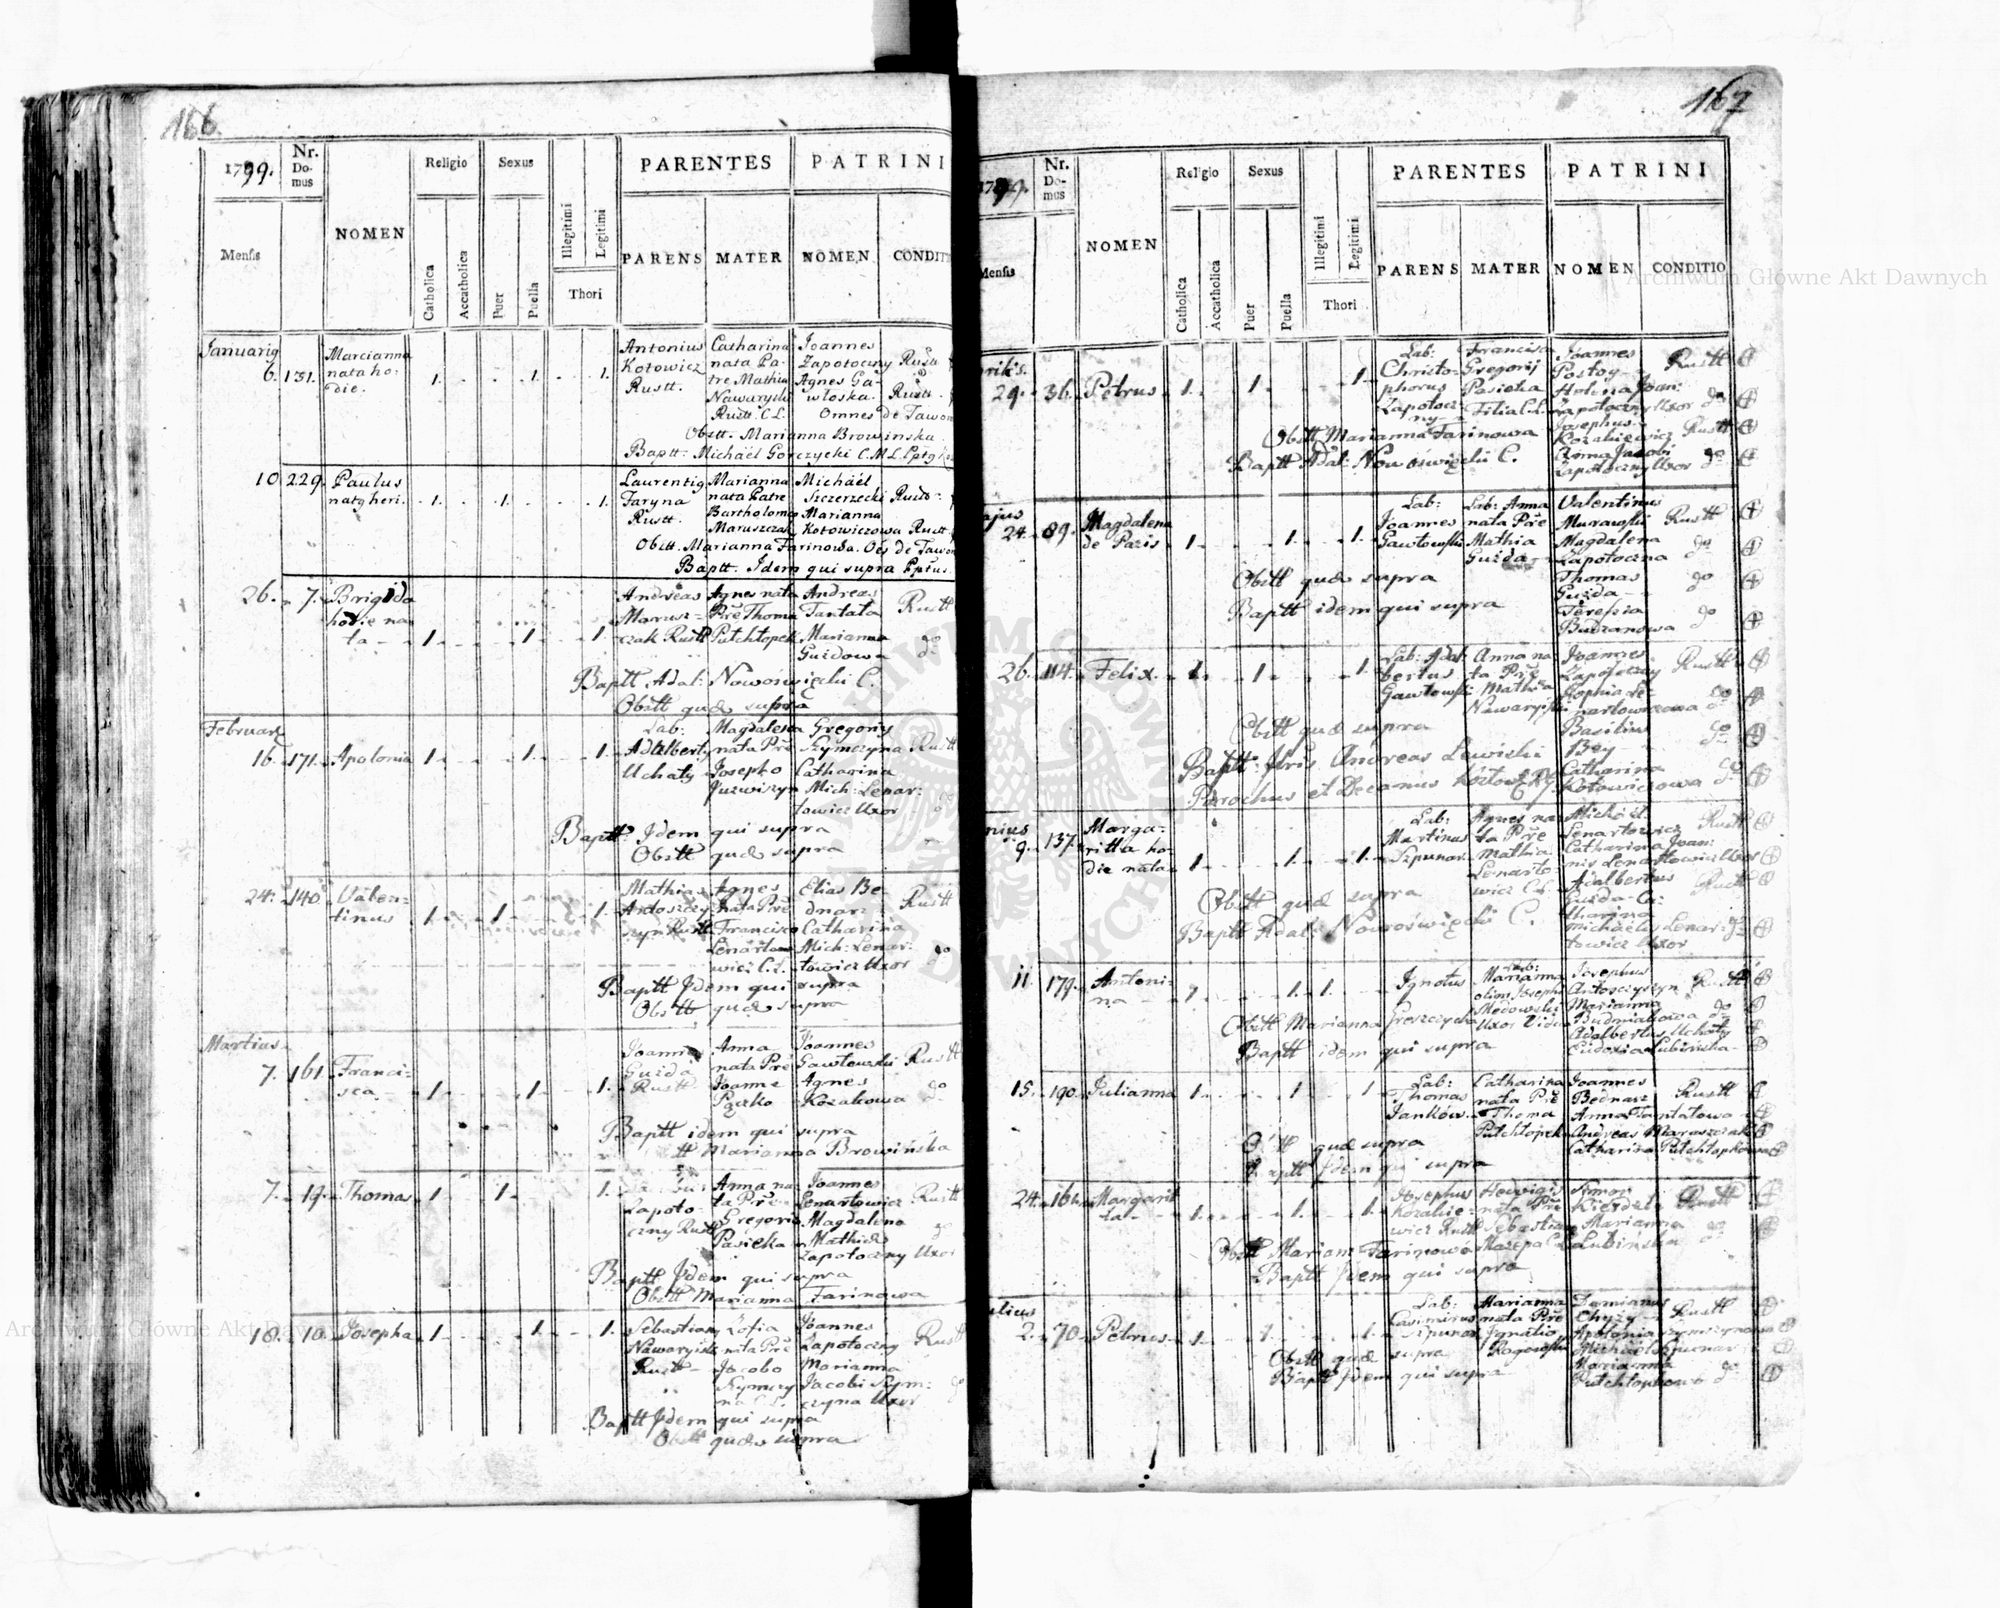 166.
1799.
Nr. Domus
NOMEN
Religio
Sexus
PARENTES
PATRINI
Mensis
Catholica
Accatholica
Puer
Puella
Illegitimi
Legitimi
Thori
PARENS
MATER
NOMEN
CONDITI
Januarig
6. 131.
Marcianna
nata ho-
die.
1. 1. 1.
Antonius
Kotowicz
Rustt.
Catharina
nata Pa-
tre Mathia
Nawaryski
Rustt. C.L.
Joannes
Zapotoczny
Agnes Ga-
włoska.
Omnes de Tawor
Rustt.
Obstt. Marianna Browinska.
Baptt. Michaël Gorczycki C.M.L.
10 229.
Paulus
natg heri.
1. 1. 1.
Laurentig
Faryna
Rustt.
Marianna
nata Patre
Bartholomeo
Maruszczak
Michäel
Szczerzecki
Marianna
Kotowiczowa Rustt.
Obstt. Marianna Farinowa.
Baptt. Idem qui supra
26. 7.
Brigida
hodie na
ta
1 1 1
Andreas
Marusz-
czak Rustt
Agnes nata
Pře Thoma
Putchłopek
Andreas
Tantała
Marianna
Guzdowa
Rustt
do
Baptt Adal: Nowoświęcki C.
Obstt quæ supra
Februarg
16. 171.
Apolonia
1 1 1.
Lab:
Adalbertg
Uchaty
Magdalena
nata Pře
Josepho
Juzwiszyn
Gregorig
Szymczyna
Catharina
Mich: Lenar:
towicz Uxor
Rustt
do
Baptt Idem qui supra
Obstt quæ supra
24. 140.
Valen-
tinus
1 1 1
Mathias
Antoszczy
szyn Rustt
Agnes
nata Pře
Francisco
Lenarto
wicz C.L.
Elias Be-
dnarz
Catharina
Mich: Lenar:
towicz Uxor
Rustt
do
Baptt Idem qui supra
Obstt quæ supra
Martius
7. 161.
Franci-
sca
1 1 1
Joannes
Guzda
Rustt
Anna
nata Pře
Joanne
Paczko
Joannes
Gawłowski
Agnes
Kozakowa
Rustt
do
Baptt idem qui supra
Marianna Browińska
7. 19.
Thomas
1 1 1.
Zapoto-
czny Rustt
Anna na
ta Pře
Gregorio
Pasieka
Joannes
Lenartowicz
Magdalena
Mathiæ
Zapotoczny Uxor
Rustt
Baptt Idem qui supra
Obstt Marianna Farinowa
18. 10.
Josepha
1 1 1.
Sebastiang
Nawaryski
Rustt
Zofia
nata Pře
Jacobo
Szymczy
na C.L.
Joannes
Zapotoczny
Marianna
Jacobi Szym:
czyna Uxor
Rustt
Baptt Idem qui supra
Obstt quæ supra
167
1799.
Nr. Domus
NOMEN
Religio
Sexus
PARENTES
PATRINI
Mensis
Catholica
Accatholica
Puer
Puella
Illegitimi
Legitimi
Thori
PARENS
MATER
NOMEN
CONDITIO
rilis
29. 36.
Petrus
1 1 1
Lab:
Christo-
phorus
Zapotocz-
ny
Francisca
Gregorij
Pasieka
Filia C.L.
Joannes
Postoy
Helena Joan:
Zapotoczny Uxor
Josephus
Kozakiewicz
Anna Jacobi
Zapotoczny Uxor
Rustt
do
Rustt
do
Obstt Marianna Farinowa
Baptt Adal: Nowoświęcki C.
ajus
24. 89.
Magdalena
de Pazis
1 1 1
Lab:
Joannes
Gawłowski
Lab: Anna
nata Pře
Mathia
Guzda
Valentinus
Murawski
Magdalena
Zapotoczna
Thomas
Guzda
Teressia
Budzanowa
Rustt
do
do
do
Obstt quæ supra
Baptt idem qui supra
26. 114.
Felix
1 1 1
Lab: Adal
bertus
Gawłowski
Anna na
ta Pře
Mathia
Nawaryski
Joannes
Zapotoczny
Sophia Le-
nartowiczowa
Basilius
Bey
Catharina
Kotowiczowa
Rustt
do
do
do
Obstt quæ supra
Baptt: Andreas Lewicki
Parochus et Decanus
nius
9. 137.
Marga-
ritta ho-
die nata
1 1 1
Lab:
Martinus
Szpunar
Agnes na
ta Pře
Mathia
Lenarto
wicz C.L.
Michäel
Lenartowicz
Catharina Joan:
nis Lenartowicz Uxor
Adalbertus
Guzda Ca:
tharina
Michaelis Lenar:
towicz Uxor
Rustt
Rustt
do
Obstt quæ supra
Baptt Adal: Nowoświęcki C.
11 179.
Antoni-
na
1 1 1
Ignotus
Lab:
Marianna
olim Josephi
Medowski
Uxor Vidua
Josephus
Antoszczyszyn
Marianna
Budniakowa
Adalbertus Uchaty
Eudoxia Lubińska
Rustt
do
Obstt Marianna Greszczycka
Baptt idem qui supra
15. 190.
Julianna
1 1 1
Lab:
Thomas
Janków
Catharina
nata Pře
Thoma
Putchłopek
Joannes
Bednarz
Anna Tantatowa
Andreas Maruszczak
Catharina Putchłopkowa
Rustt
Obstt quæ supra
Baptt Idem qui supra
24. 164.
Margarit
ta
1 1 1
Josephus
Kozakie-
wicz Rustt
Hedvigis
nata Pře
Sebastiano
Mazepa C.L.
Simon
Marianna
Lubińska
Rustt
do
Obstt Mariann Farinowa
Baptt Idem qui supra
ulius
2. 70.
Petrus
1 1 1
Lab:
Casimirus
Szpunar
Marianna
nata Pře
Ignatio
Rogowski
Damianus
Chyzy
Apolonia Szymczynowa
Michael Szpunar
Marianna
Putchłopkowa
Rustt
do
Obstt quæ supra
Baptt Idem qui supra
Archiwum Główne Akt Dawnych
Archiwum Główne Akt Dawnych
ARCHIWUM GŁÓWNE AKT DAWNYCH